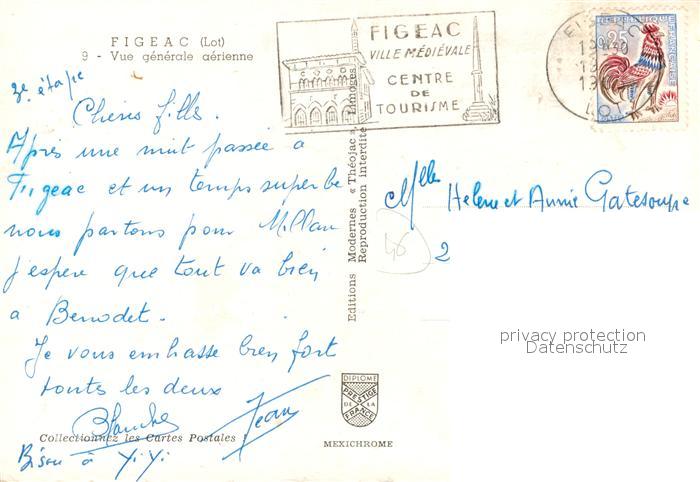 FIGEAC (Lot)
9 - Vue générale aérienne
FIGEAC
VILLE MÉDIÉVALE
CENTRE
DE
TOURISME
0,25
2e étape
Chères filles.
Après une nuit passée à
Figeac et un temps superbe
nous partons pour Millau
j'espere que tout va bien
a Benodet.
Je vous embrasse bien fort
toutes les deux
Blanche Jean
Collectionnez les Cartes Postales !
Bisou à YiYi
Editions Modernes « Théojac », Limoges
Reproduction Interdite
Mlle Helene et Annie Gatesoupe
48
2
privacy protection
Datenschutz
DIPLOME
PRESTIGE
DE LA
FRANCE
MEXICHROME